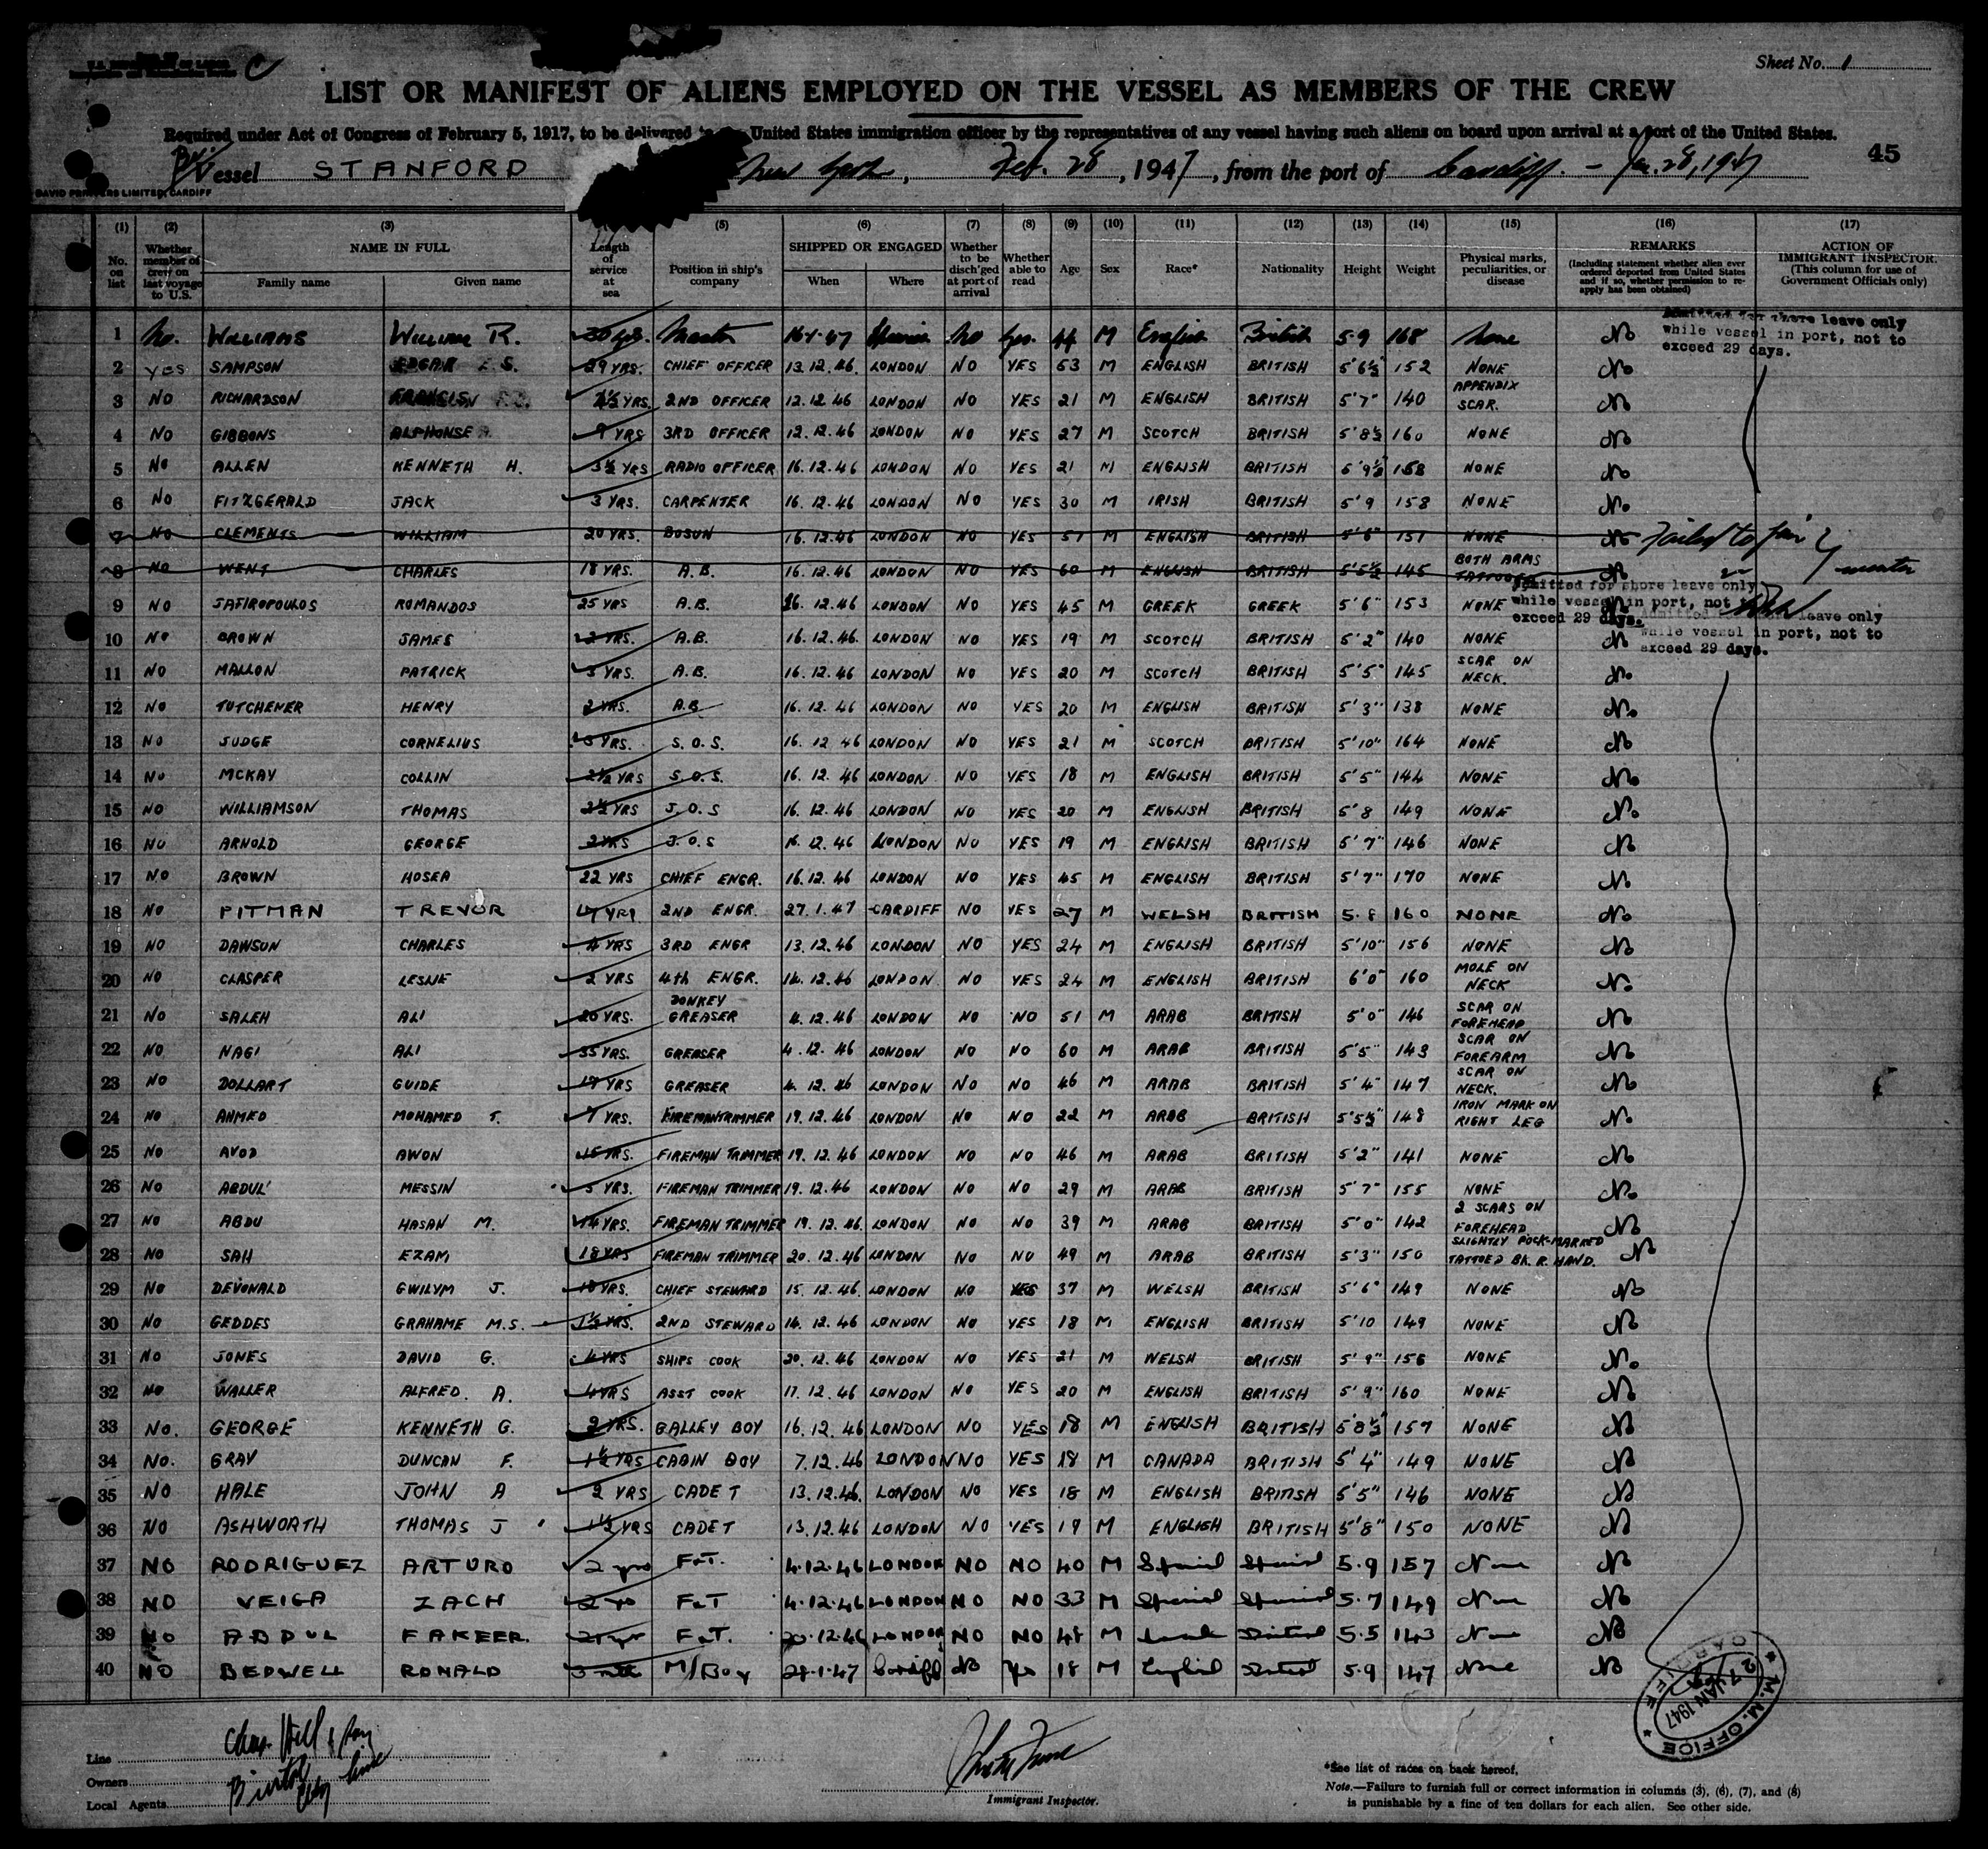 Sheet No. 1
LIST OR MANIFEST OF ALIENS EMPLOYED ON THE VESSEL AS MEMBERS OF THE CREW
Required under Act of Congress of February 5, 1917, to be delivered United States immigration officer by the representatives of any vessel having such aliens on board upon arrival at a port of the United States.
Vessel STANFORD New York, Feb. 28, 1947, from the port of Cardiff. - Jan. 28, 1947
45
DAVID PRINTERS LIMITED, CARDIFF
(1) (2) (3) (5) (6) (7) (8) (9) (10) (11) (12) (13) (14) (15) (16) (17)
No. on list Whether member of crew on last voyage to U.S. NAME IN FULL Family name Given name Length of service at sea Position in ship's company SHIPPED OR ENGAGED When Where Whether to be disch'ged at port of arrival Whether able to read Age Sex Race* Nationality Height Weight Physical marks, peculiarities, or disease REMARKS (Including statement whether alien ever ordered deported from United States and if so, whether permission to re-apply has been obtained) ACTION OF IMMIGRANT INSPECTOR. (This column for use of Government Officials only)
1 No. WILLIAMS WILLIAM R. 30 yrs. Master 16-1-47 No Yes 44 M English British 5-9 168 None No
Admitted for shore leave only
while vessel in port, not to
exceed 29 days.
2 YES SAMPSON EDGAR E.S. 29 YRS. CHIEF OFFICER 13.12.46. LONDON NO YES 53 M ENGLISH BRITISH 5'6½ 152 NONE No
3 NO RICHARDSON FRANCIS 2ND OFFICER 12.12.46 LONDON NO YES 21 M ENGLISH BRITISH 5'7" 140 APPENDIX SCAR. No
4 NO GIBBONS ALPHONSE 9 YRS 3RD OFFICER 12.12.46 LONDON NO YES 27 M SCOTCH BRITISH 5'8½ 160 NONE No
5 NO ALLEN KENNETH H. 3½ YRS RADIO OFFICER 16.12.46 LONDON NO YES 21 M ENGLISH BRITISH 158 NONE No
6 NO FITZGERALD JACK 3 YRS. CARPENTER 16.12.46 LONDON NO YES 30 M IRISH BRITISH 5'9 158 NONE No
7 NO CLEMENTS WILLIAM 20 YRS. BOSUN 16.12.46 LONDON NO YES 51 M ENGLISH BRITISH 5'6" 151 NONE No Failed to join
8 NO WENT CHARLES 18 YRS. A.B. 16.12.46 LONDON NO YES 60 M ENGLISH BRITISH 5'5½ 145 BOTH ARMS TATTOOED No
Admitted for shore leave only
while vessel in port, not to
exceed 29 days.
9 NO JAFIROPOULOS ROMANDOS 25 YRS A.B. 16.12.46 LONDON NO YES 45 M GREEK GREEK 5'6" 153 NONE No
Admitted for shore leave only
while vessel in port, not to
exceed 29 days.
10 NO BROWN JAMES 2 YRS. A.B. 16.12.46. LONDON NO YES 19 M SCOTCH BRITISH 5'2" 140 NONE No
11 NO MALLON PATRICK 3 YRS. A.B. 16.12.46 LONDON NO YES 20 M SCOTCH BRITISH 5'5" 145 SCAR ON NECK. No
12 NO TUTCHENER HENRY 2 YRS. A.B. 16.12.46 LONDON NO YES 20 M ENGLISH BRITISH 5'3" 138 NONE No
13 NO JUDGE CORNELIUS 3 YRS. S.O.S. 16.12 46 LONDON NO YES 21 M SCOTCH BRITISH 5'10" 164 NONE No
14 NO MCKAY COLLIN 2½ YRS S.O.S. 16.12.46 LONDON NO YES 18 M ENGLISH BRITISH 5'5" 144 NONE No
15 NO WILLIAMSON THOMAS 2½ YRS J.O.S 16.12.46 LONDON NO YES 20 M ENGLISH BRITISH 5'8 149 NONE No
16 NO ARNOLD GEORGE 2 YRS J.O.S 16.12.46 LONDON NO YES 19 M ENGLISH BRITISH 5'7" 146 NONE No
17 NO BROWN HOSEA 22 YRS CHIEF ENGR. 16.12.46 LONDON NO YES 45 M ENGLISH BRITISH 5'7" 170 NONE No
18 NO PITMAN TREVOR 4 YRS 2ND ENGR. 27.1.47 CARDIFF NO YES 27 M WELSH BRITISH 5.8 160 NONE No
19 NO DAWSON CHARLES 4 YRS 3RD ENGR 13.12.46 LONDON NO YES 24 M ENGLISH BRITISH 5'10" 156 NONE No
20 NO CLASPER LESLIE 2 YRS 4th ENGR. 14.12.46 LONDON NO YES 24 M ENGLISH BRITISH 6'0" 160 MOLE ON NECK No
21 NO SALEH ALI 20 YRS. DONKEY GREASER 4.12.46 LONDON NO NO 51 M ARAB BRITISH 5'0" 146 SCAR ON FOREHEAD No
22 NO NAGI ALI 35 YRS. GREASER 4.12.46 LONDON NO NO 60 M ARAB BRITISH 5'5" 143 SCAR ON FOREARM No
23 NO DOLLART GUIDE 17 YRS GREASER 4.12.46 LONDON NO NO 46 M ARAB BRITISH 5'4" 147 SCAR ON NECK. No
24 NO AHMED MOHAMED T. 7 YRS. FIREMAN TRIMMER 19.12.46 LONDON NO NO 22 M ARAB BRITISH 5'5½" 148 IRON MARK ON RIGHT LEG No
25 NO AVOD AWON 15 YRS. FIREMAN TRIMMER 19.12.46 LONDON NO NO 46 M ARAB BRITISH 5'2" 141 NONE No
26 NO ABDUL MESSIN 5 YRS. FIREMAN TRIMMER 19.12.46 LONDON NO NO 29 M ARAB BRITISH 5'7" 155 NONE No
27 NO ABDU HASAN M. 14 YRS. FIREMAN TRIMMER 19.12.46. LONDON NO NO 39 M ARAB BRITISH 5'0" 142 2 SCARS ON FOREHEAD No
28 NO SAH EZAM 18 YRS FIREMAN TRIMMER 20.12.46 LONDON NO NO 49 M ARAB BRITISH 5'3" 150 SLIGHTLY POCK-MARKED TATTOED BK. R. HAND. No
29 NO DEVONALD GWILYM J. 18 YRS. CHIEF STEWARD 15.12.46. LONDON NO YES 37 M WELSH BRITISH 5'6" 149 NONE No
30 NO GEDDES GRAHAME M.S. 1½ YRS. 2ND STEWARD 14.12.46 LONDON NO YES 18 M ENGLISH BRITISH 5'10 149 NONE No
31 NO JONES DAVID G. 4 YRS SHIPS COOK 20.12.46 LONDON NO YES 21 M WELSH BRITISH 5'9" 156 NONE No
32 NO WALLER ALFRED. A. 4 YRS ASST COOK 17.12.46 LONDON NO YES 20 M ENGLISH BRITISH 5'9" 160 NONE No
33 NO. GEORGE KENNETH G. 2 YRS. GALLEY BOY 16.12.46 LONDON NO YES 18 M ENGLISH BRITISH 5'8½" 157 NONE No
34 NO. GRAY DUNCAN F. 1½ YRS CABIN BOY 7.12.46 LONDON NO YES 18 M CANADA BRITISH 5'4" 149 NONE No
35 NO HALE JOHN A 2 YRS CADET 13.12.46. LONDON NO YES 18 M ENGLISH BRITISH 5'5" 146 NONE No
36 NO ASHWORTH THOMAS J 1½ YRS CADET 13.12.46 LONDON NO YES 19 M ENGLISH BRITISH 5'8" 150 NONE No
37 NO RODRIGUEZ ARTURO 2 yrs F&T. 4.12.46 LONDON NO NO 40 M 5.9 157 None No
38 NO VEIGA ZACH 2 F&T 4.12.46 LONDON NO NO 33 M 5.7 149 None No
39 NO ABDUL FAKEER. F&T. 20.12.46 LONDON NO NO 48 M 5.5 143 None No
40 NO BEDWELL RONALD M/Boy 27.1.47 Cardiff No Yes 18 M English British 5.9 147 None No
M.M. OFFICE
27 JAN 1947
CARDIFF
Line Chas. Hill & Son
Owners Bristol City Line
Local Agents
Immigrant Inspector.
*See list of races on back hereof.
Note.—Failure to furnish full or correct information in columns (3), (6), (7), and (8)
is punishable by a fine of ten dollars for each alien. See other side.